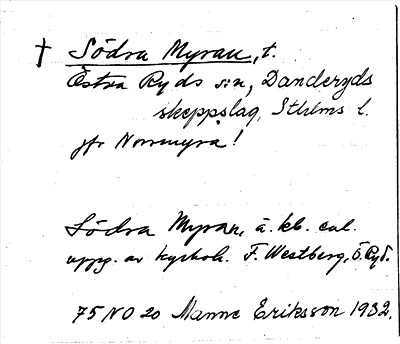 † Södra Myran, t.
Östra Ryds sn, Danderyds
skeppslag, Sthlms l.
jfr Norrmyra!
Södra Myran, ä. kb. enl.
uppg. av kyrkoh. F. Westberg, Ö. Ryd.
75 NO 20 Manne Eriksson 1932.